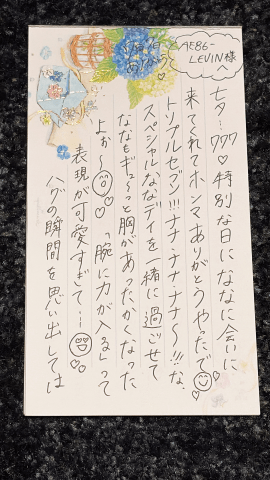 AE86-
LEVIN様
へ
七夕…777♡特別な日にななに会いに
来てくれてホンマありがとうやったで
トリプルセブン!!!ナナナナナナ〜!!!な
スペシャルななデイを一緒に過ごせて
ななもギューっと胸があったかくなった
よぉ〜 「腕に力が入る」って
表現が可愛すぎて…
ハグの瞬間を思い出しては